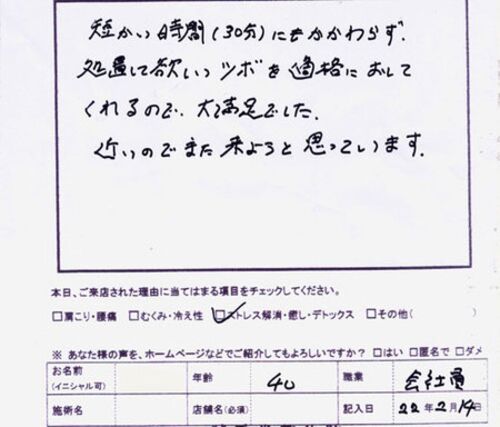 短かい時間(30分)にもかかわらず、
処置して欲しいツボを適格におして
くれるので、大満足でした。
近いのでまた来ようと思っています。
本日、ご来店された理由に当てはまる項目をチェックしてください。
□肩こり・腰痛 □むくみ・冷え性 ☑ストレス解消・癒し・デトックス □その他(
※ あなた様の声を、ホームページなどでご紹介してもよろしいですか? □はい □匿名で □ダメ
お名前 (イニシャル可) 年齢 40 職業 会社員
施術名 店舗名(必須) 記入日 22年2月14日